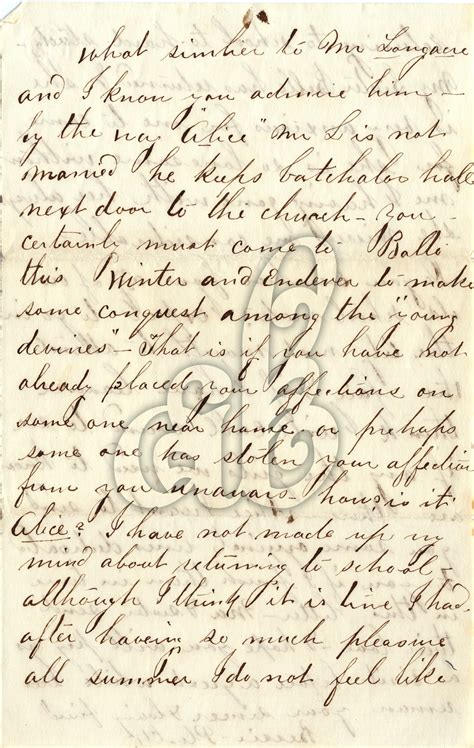 what similer to Mr Longacre
and I know you admire him -
by the way "Alice" Mr L is not
married he keeps batchalor hall
next door to the church - you
certainly must come to Balto
this Winter and Endever to make
some conquest among the "young
devines" - That is if you have not
already placed your affections on
some one near home or prehaps
some one has stolen your affection
from you unawars - how is it
Alice? I have not made up my
mind about returning to school -
although I think it is time I had
after haveing so much pleasure
all summer I do not feel like